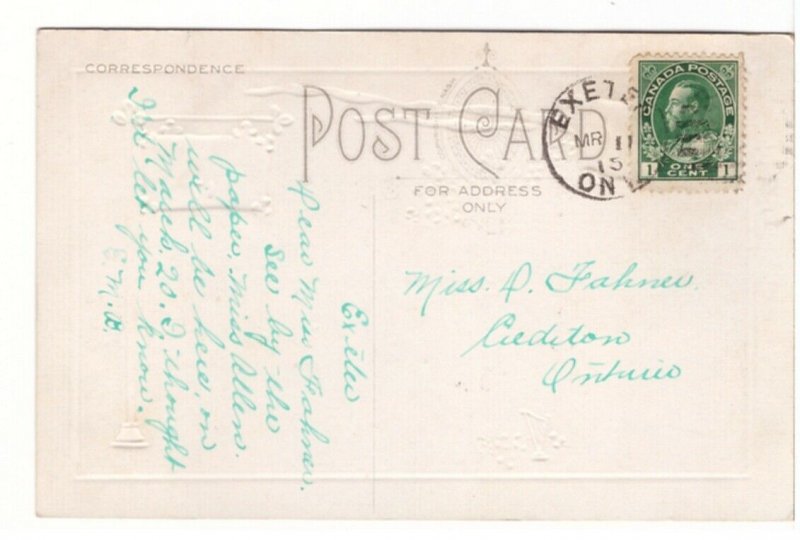 CORRESPONDENCE
POST CARD
FOR ADDRESS
ONLY
EXETE
MR 11
15
ON
CANADA POSTAGE
1 ONE 1
CENT
Exeter
Dear Miss Fahner.
See by the
paper, Miss Allen.
will be here, on
March. 20. I thought
I'd let you know.
Miss. D. Fahner.
Crediton
Ontario